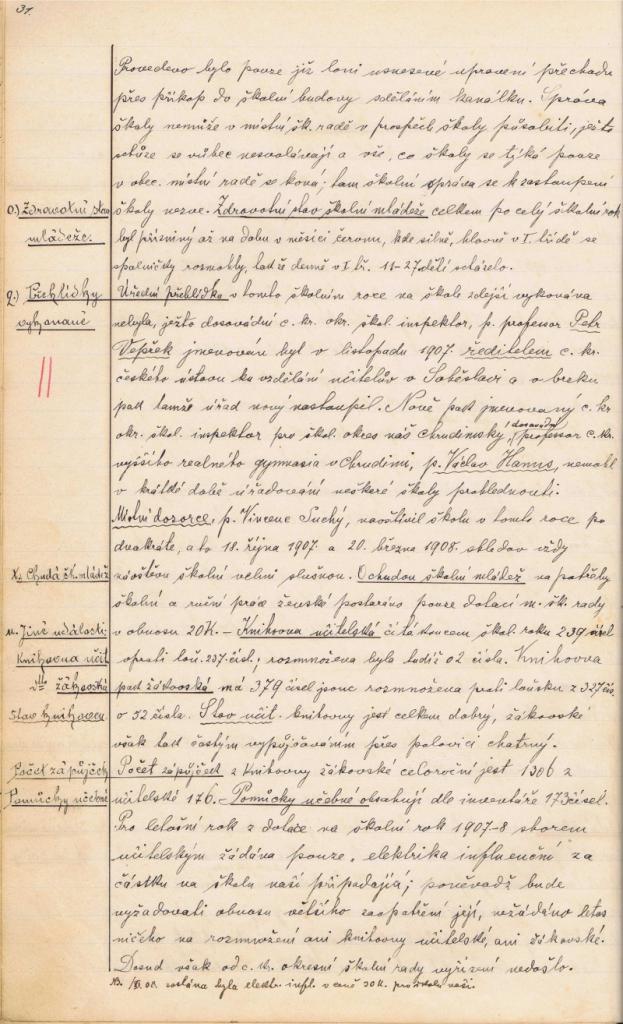 31.
Provedeno bylo pouze již loni usnesené upravení přechodu
přes příkop do školní budovy sděláním kanálku. Správa
školy nemůže v místní šk. radě v prospěch školy působiti, ježto
schůze se vůbec nesvolávají a vše, co školy se týká pouze
v obec. místní radě se koná; tam školní správa se k zastoupení
o.) Zdravotní stav
školy nezve. Zdravotní stav školní mládeže celkem po celý školní rok
mládeže.
byl příznivý až na dobu v měsíci červnu, kde silně, hlavně v I. třídě se
spalničky rozmohly, takže denně v I. tř. 11-27 dětí scházelo.
q.) Přehlídky
Úřední přehlídka v tomto školním roce na škole zdejší vykonána
vykonané
nebyla, ježto dosavádní c. kr. okr. škol. inspektor, p. professor Petr
Vepřek jmenován byl v listopadu 1907. ředitelem c. kr.
II
českého ústavu ku vzdělání učitelův v Soběslavi a v brzku
pak tamže úřad nový nastoupil. Nově pak jmenovaný c. kr.
okr. škol. inspektor pro škol. okres náš chrudimský, dosavadní professor c. kr.
vyššího realného gymnasia v Chrudimi, p. Václav Hanus, nemohl
v krátké době úřadování veškeré školy prohlédnouti.
Místní dozorce, p. Vincenc Suchý, navštívil školu v tomto roce po
dvakráte, a to 18. října 1907. a 20. března 1908. shledav vždy
Chudá šk. mládež
návštěvu školní velmi slušnou. Ochudou školní mládež na potřeby
školní a ruční práce ženské postaráno pouze dotací m. šk. rady
u. Jiné události:
v obnosu 20K. – Knihovna učitelská čítá koncem škol. roku 239 čísel
Knihovna učit.
oproti loň. 237 čísl.; rozmnožena byla tudíž o 2 čísla. Knihovna
žákovská
pak žákovská má 379 čísel jsouc rozmnožena proti loňsku z 327 čís.
Stav knihoven
o 52 čísla. Stav učit. knihovny jest celkem dobrý, žákovské
však tak častým vypůjčováním přes polovici chatrný.
Počet zápůjček
Počet zápůjček z knihovny žákovské celoroční jest 1306 z
Pomůcky učebné
učitelské 176. – Pomůcky učebné obsahují dle inventáře 173 čísel.
Pro letošní rok z dotace na školní rok 1907-8 sborem
učitelským žádána pouze „elektrika influenční za
částku na školu naši připadající; poněvadž bude
vyžadovati obnosu většího zaopatření její, nežádáno letos
ničeho na rozmnožení ani knihovny učitelské, ani žákovské.
Dosud však od c. kr. okresní školní rady vyřízení nedošlo.
zaslána byla elektr. infl. v ceně 30 K. pro školu naši.